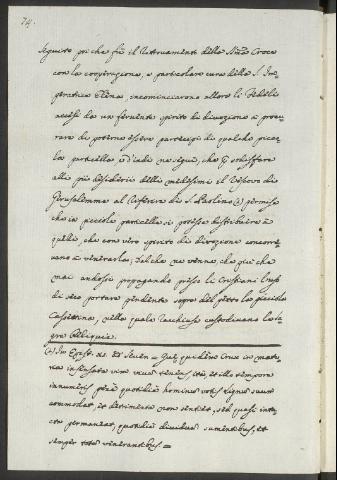 74.
Seguito poi che fù il ritrovamento della SS.ma Croce
con la cooperazione, e particolare cura della S. Im-
peratrice Elena, incominciarono allora li Fedeli
accesi da un fervente spirito di divozione à procu-
rare di potermo essere partecipi di qualche picco-
la particella; e d'indi ne seguì, che p sodisfare
alli più desiderii delli medesimi il Vescovo di
Gerusalemme al riferire di S. Paolino (a) permise
che in piccole particelle si potesse distribuire à
quelli, che con vivo spirito di divozione concorre-
vano à venerarla; Talche ne venne, che più che
mai andossi propagando presso li Cristiani l'uso
di seco portare pendente sopra del petto la piccola
Cassettina, nella quale racchiuso custodivano la sa-
gra Reliquia.
(a) In Epist. xi. ad Sever. = Quę quidem Crux in mate-
ria insensata vim vivam tenens, ita, ex illo tempore
innumeris penè quotidie hominum votis lignum suum
commodat, ut detrimenta non sentiat, sed quasi inta-
cta permaneat, quotidie dividuam sumentibus, et
semper totam venerantibus =